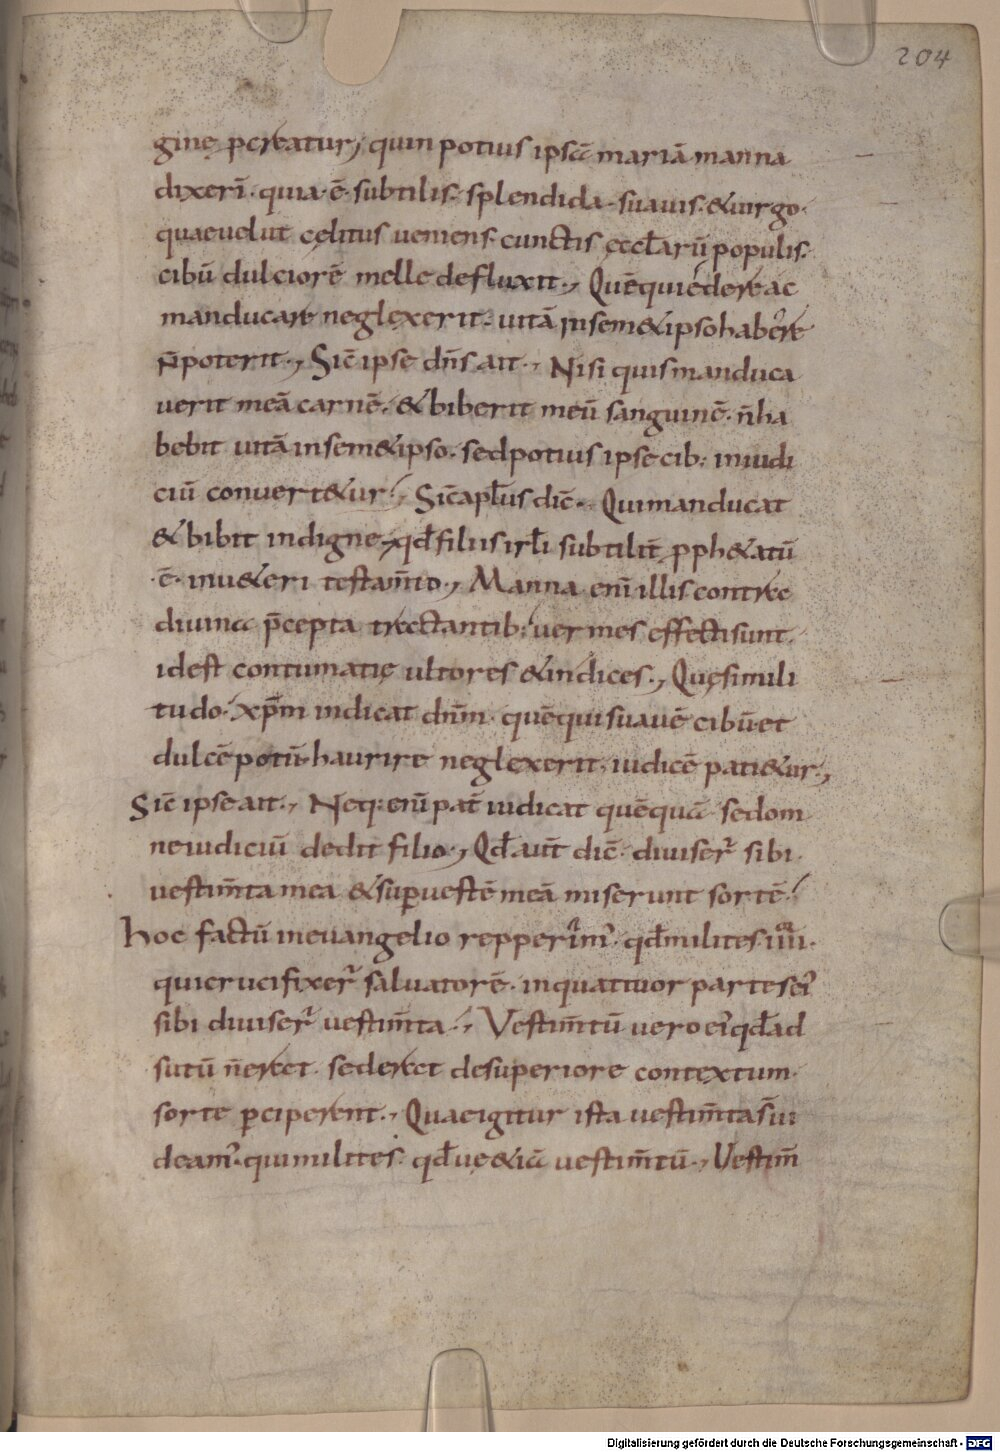 204
ginę pcreatur, quin potius ipsā mariā manna
dixerī · quia · ē · subtilis · splendida · suauis · & uirgo ·
quaeuelut cęlitus ueniens · cunctis ęccl̄arū populis ·
cibū dulciorē melle defluxit ., Quē qui edere ac
manducare neglexerit · uitā in sem& ipso habere
n̄ poterit ., Sic̄ ipse dn̄s ait ., Nisi quis manduca
uerit meā carnē · & biberit meū sanguinē · n̄ ha
bebit uitā in sem& ipso · sed potius ipse cib: in iudi
ciū conuert&ur ., Sic̄ apl̄us dic̄ · Qui manducat
& bibit indigne · qd̄ filiis isrl̄i subtilit̄ pph&atū
· ē · in u&eri testam̄to ., Manna enī illis contra
diuina p̄cepta tractantib: uermes effecti sunt ·
id est contumatię ultores & indices ., Quę simili
tudo · xp̄m indicat dn̄m · quē qui suauē cibū et
dulcē potū haurire neglexerit · iudicē pati&ur .,
Sic̄ ipse ait ., Neq: enī pat̄ iudicat quēquā · sed om
ne iudiciū dedit filio ., Qd̄ aut̄ dic̄ · diuiser̄ sibi ·
uestim̄ta mea & sup uestē meā miserunt sortē ·
hoc factū in euangelio repperim' · qd̄ milites · iiii ·
qui crucifixer̄ saluatorē · in quattuor partes ei'
sibi diuiser̄ uestim̄ta ., Vestim̄tū uero ei' qd̄ ad
sutū n̄ erat · sed erat desuperiore contextum ·
sorte pciperent ., Quae igitur ista uestim̄ta s̄ ui
deam' · qui milites · qd̄ uę &iā uestim̄tū ., Vestim̄
Digitalisierung gefördert durch die Deutsche Forschungsgemeinschaft - DFG